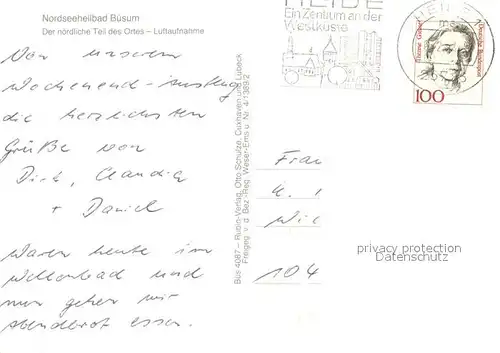 Nordseeheilbad Büsum
Der nördliche Teil des Ortes – Luftaufnahme
Von unserem
Wochenend-Ausflug
die herzlichsten
Grüße von
Dirk, Claudia
+ Daniel
Waren heute im
Wellenbad und
nun gehen wir
Abendbrot essen.
Büs 4087 – Rubin-Verlag, Otto Schulze, Cuxhaven und Lübeck
Freigeg. v. d. Bez.-Reg. Weser-Ems u. Nr. 4/1389/2
HEIDE
Ein Zentrum an der
Westküste
HEIDE
Deutsche Bundespost
100
Frau
104
privacy protection
Datenschutz